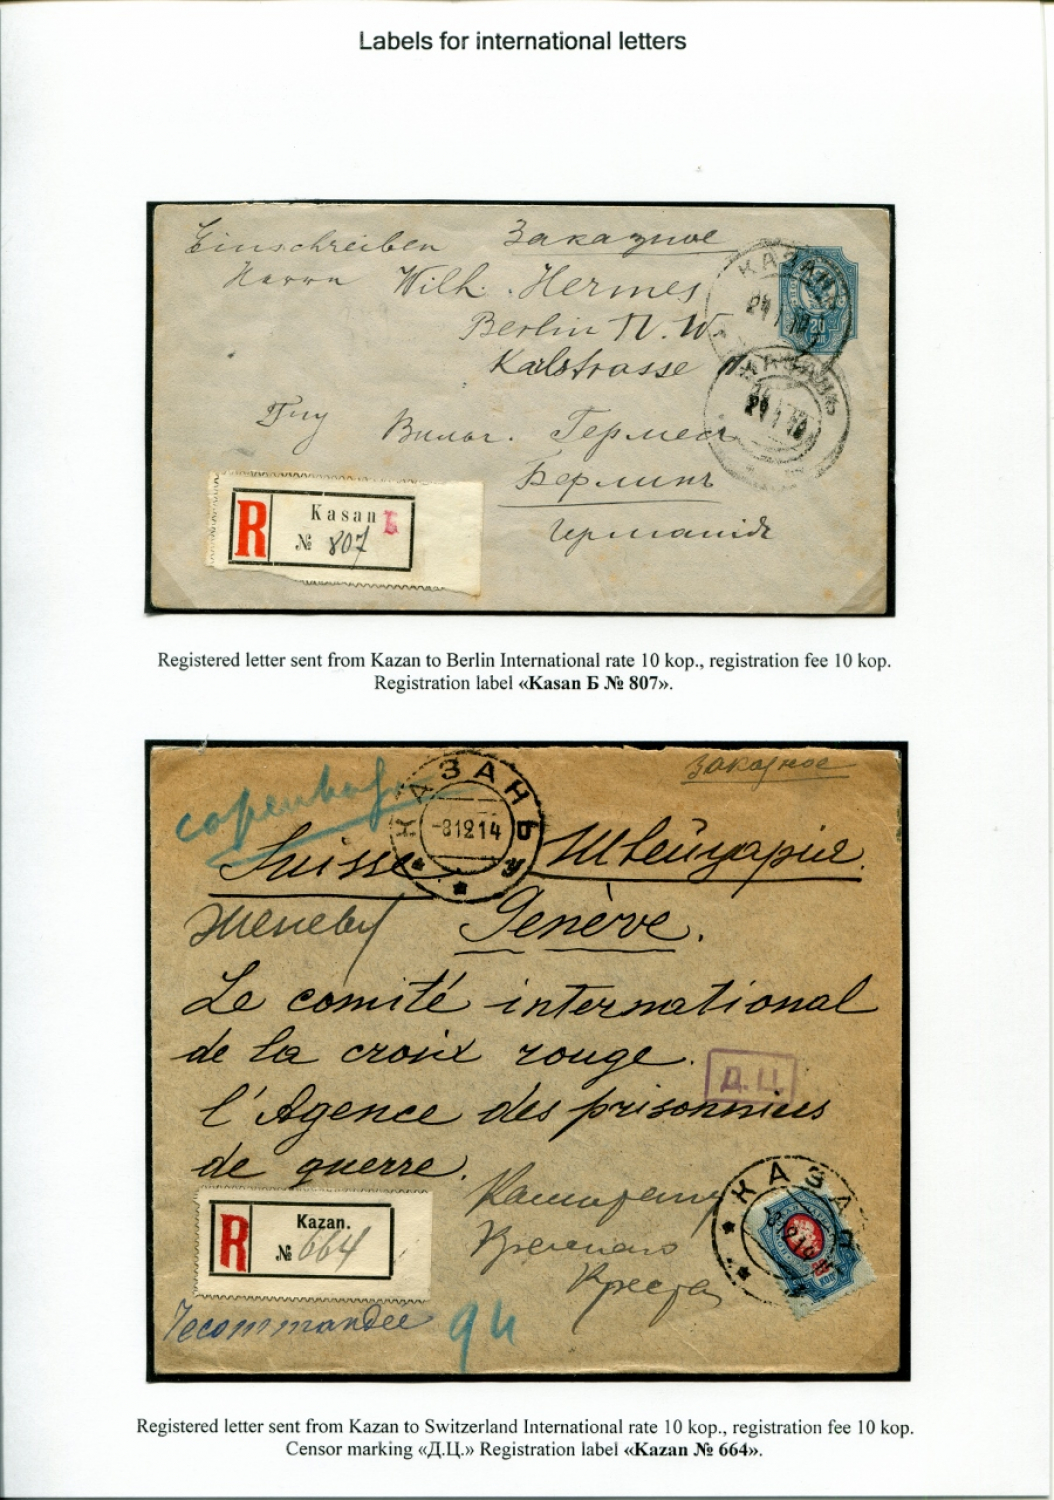 Labels for international letters
Einschreiben Заказное
Herrn Wilh. Hermes
Berlin N. W.
Karlstrasse
КАЗАНЬ
20
КОП
КАЗАНЬ
Вильг. Гермес
Берлинъ
Германія
R Kasan Б
№ 807
Registered letter sent from Kazan to Berlin International rate 10 kop., registration fee 10 kop.
Registration label «Kasan Б № 807».
Заказное
Copenhagen
КАЗАНЬ
-81214
Suisse Швейцарія.
Женева Genève.
Le comité international
de la croix rouge.
Д.Ц.
l'Agence des prisonniers
de guerre.
КАЗАН
R Kazan.
№ 664
Красного
Креста
Recommandée
Registered letter sent from Kazan to Switzerland International rate 10 kop., registration fee 10 kop.
Censor marking «Д.Ц.» Registration label «Kazan № 664».